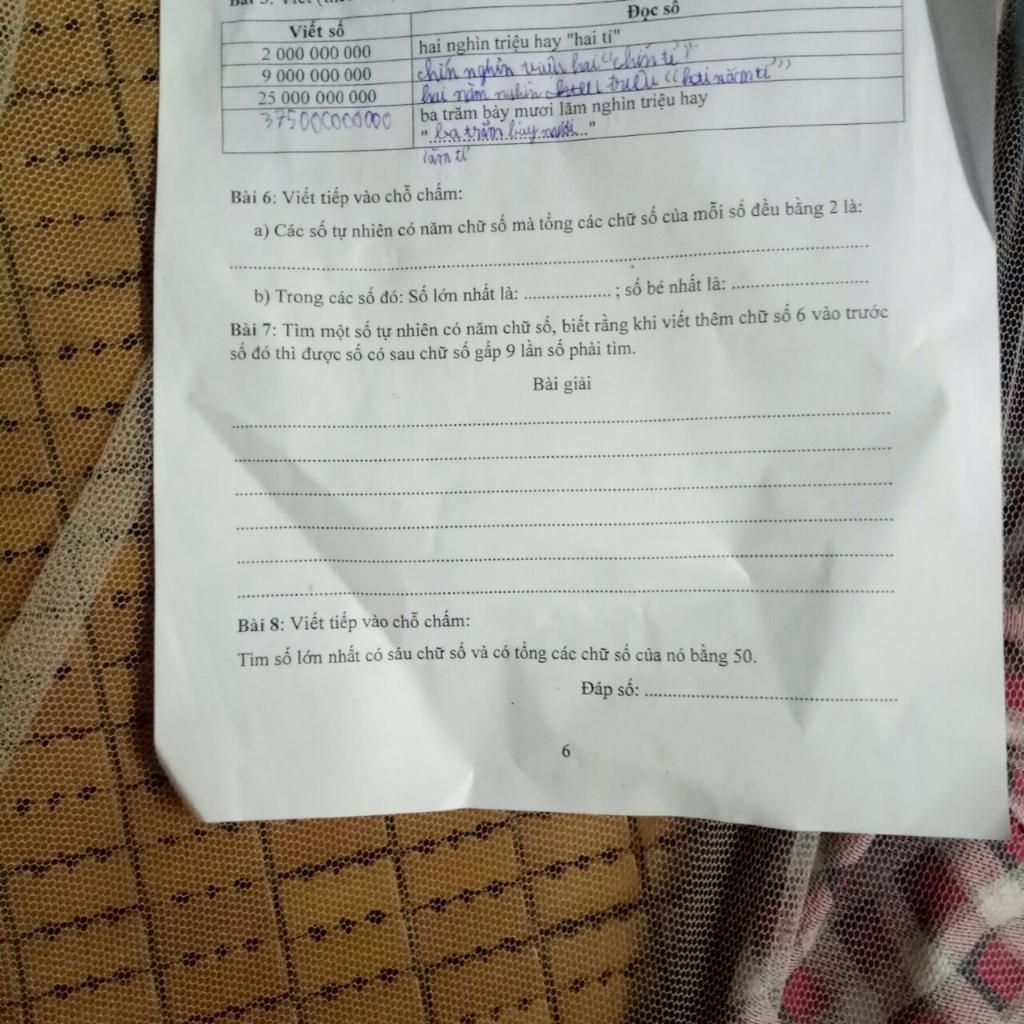 Đọc số
Viết số
2 000 000 000 hai nghìn triệu hay "hai tỉ"
9 000 000 000 chín nghìn triệu hai "chín tỉ"
25 000 000 000 hai năm nghìn triệu "hai năm tỉ"
375000000000 ba trăm bảy mươi lăm nghìn triệu hay
" ba trăm bảy mươi..."
lăm tỉ
Bài 6: Viết tiếp vào chỗ chấm:
a) Các số tự nhiên có năm chữ số mà tổng các chữ số của mỗi số đều bằng 2 là:
b) Trong các số đó: Số lớn nhất là: .................... ; số bé nhất là: ..............................
Bài 7: Tìm một số tự nhiên có năm chữ số, biết rằng khi viết thêm chữ số 6 vào trước
số đó thì được số có sau chữ số gấp 9 lần số phải tìm.
Bài giải
Bài 8: Viết tiếp vào chỗ chấm:
Tìm số lớn nhất có sáu chữ số và có tổng các chữ số của nó bằng 50.
Đáp số: ........................................................
6